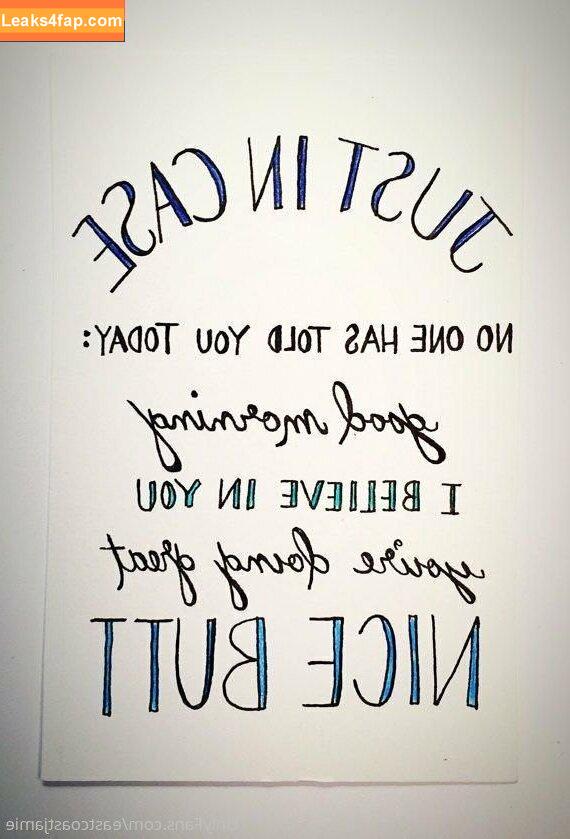 Leaks4fap.com
JUST IN CASE
NO ONE HAS TOLD YOU TODAY:
good morning
I BELIEVE IN YOU
you're doing great
NICE BUTT
OnlyFans.com/eastcoastjamie